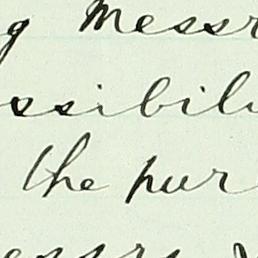 g Messr
ssibili
the pur